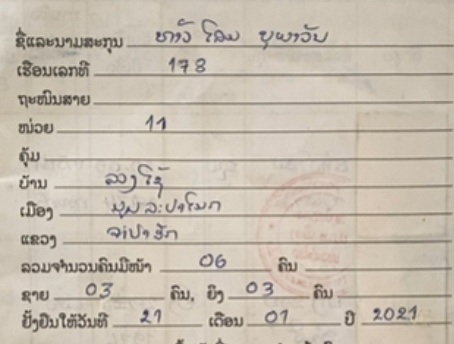 ຊື່ແລະນາມສະກຸນ ທ້າວ ໂສມ ບຸຜາວັນ
ເຮືອນເລກທີ 178
ຖະໜົນສາຍ
ໜ່ວຍ 11
ຄຸ້ມ
ບ້ານ
ເມືອງ ມູນລະປາໂມກ
ແຂວງ ຈຳປາສັກ
ລວມຈຳນວນຄົນມີໜ້າ 06 ຄົນ
ຊາຍ 03 ຄົນ, ຍິງ 03 ຄົນ
ຢັ້ງຢືນໃຫ້ວັນທີ 21 ເດືອນ 01 ປີ 2021